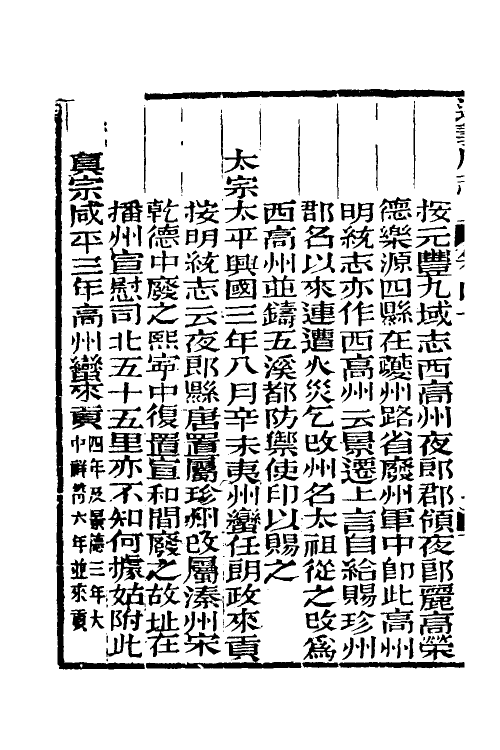 按元豐九域志西高州夜郎郡領夜郎麗高榮
德樂源四縣在夔州路省廢州軍中卽此高州
明統志亦作西高州云景遷上言自給賜珍州
郡名以來連遭火災乞改州名太祖從之改爲
西高州並鑄五溪都防禦使印以賜之
太宗太平興國三年八月辛未夷州蠻任朗政來貢
按明統志云夜郎縣唐置屬珍州改屬溱州宋
乾德中廢之熙寧中復置宣和間廢之故址在
播州宣慰司北五十五里亦不知何據姑附此
眞宗咸平三年高州蠻來貢四年及景德三年大中祥符六年並來貢